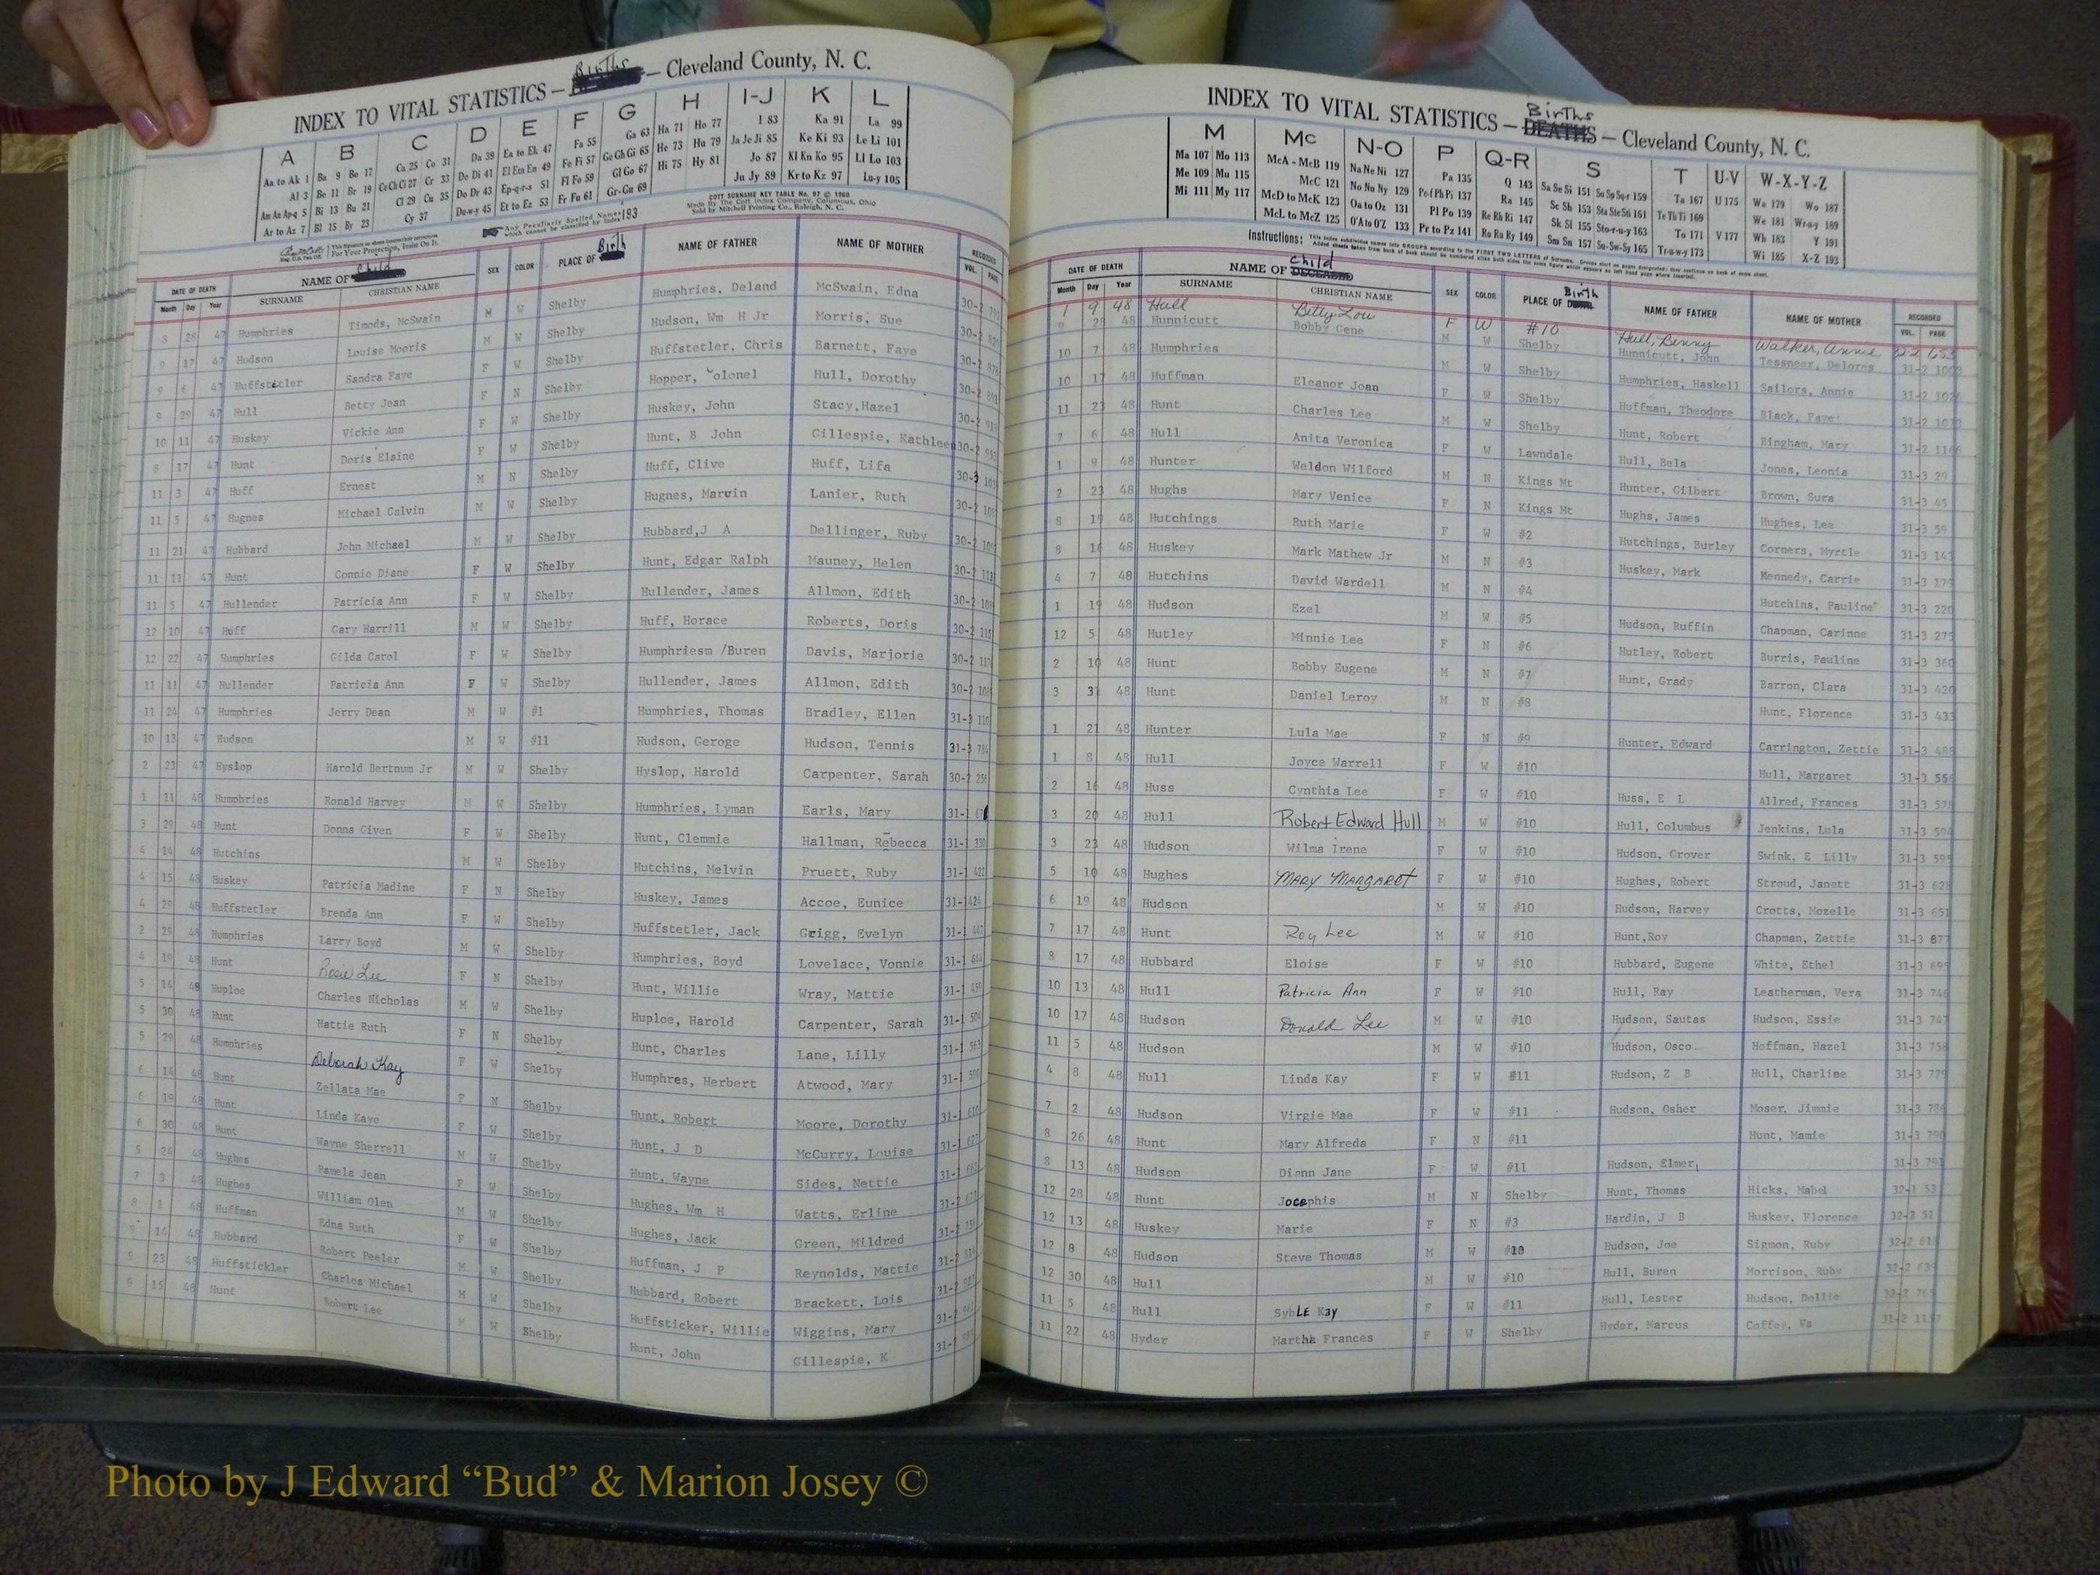 INDEX TO VITAL STATISTICS — Births — Cleveland County, N. C.
A B C D E F G H I-J K L
Aa to Ak 1 Ba 9 Bo 17 Ca 25 Co 31 Da 39 Ea to Ek 47 Fa 55 Ga 63 Ha 71 Ho 77 I 83 Ka 91 La 99
Al 3 Be 11 Br 19 Ce Ch Ci 27 Cr 33 De Di 41 El Em En 49 Fe Fi 57 Ge Gh Gi 65 He 73 Hu 79 Ja Je Ji 85 Ke Ki 93 Le Li 101
Am An Ap-q 5 Bi 13 Bu 21 Cl 29 Cu 35 Do Dr 43 Ep-q-r-s 51 Fl Fo 59 Gl Go 67 Hi 75 Hy 81 Jo 87 Kl Kn Ko 95 Ll Lo 103
Ar to Az 7 Bl 15 By 23 Cy 37 Du-w-y 45 Et to Ez 53 Fr Fu 61 Gr-Gu 69 Ju Jy 89 Kr to Kz 97 Lu-y 105
COTT SURNAME KEY TABLE No. 97 © 1960
Made By The Cott Index Company, Columbus, Ohio
Sold by Mitchell Printing Co., Raleigh, N. C.
Any Peculiarly Spelled Names which cannot be classified by Index 193
This Signature on Above Guarantees correctness
For Your Protection, Insist On It.
DATE OF DEATH NAME OF Child SEX COLOR PLACE OF Birth NAME OF FATHER NAME OF MOTHER RECORDED
Month Day Year SURNAME CHRISTIAN NAME VOL. PAGE
8 28 47 Humphries Timods, McSwain M W Shelby Humphries, Deland McSwain, Edna 30-2
9 17 47 Hudson Louise Mooris M W Shelby Hudson, Wm H Jr Morris, Sue 30-2
9 6 47 Huffstetler Sandra Faye F W Shelby Huffstetler, Chris Barnett, Faye 30-2
9 29 47 Hull Betty Jean F N Shelby Hopper, olonel Hull, Dorothy 30-2
10 11 47 Huskey Vickie Ann F W Shelby Huskey, John Stacy,Hazel 30-2
8 17 47 Hunt Doris Elaine F W Shelby Hunt, B John Gillespie, Kathleen 30-2
11 3 47 Huff Ernest M N Shelby Huff, Clive Huff, Lifa 30-3
11 5 47 Hugnes Michael Calvin M W Shelby Hugnes, Marvin Lanier, Ruth 30-2
11 21 47 Hubbard John Michael M W Shelby Hubbard,J A Dellinger, Ruby 30-2
11 11 47 Hunt Connie Diane F W Shelby Hunt, Edgar Ralph Mauney, Helen 30-2
11 5 47 Hullender Patricia Ann F W Shelby Hullender, James Allmon, Edith 30-2
12 10 47 Huff Gary Harrill M W Shelby Huff, Horace Roberts, Doris 30-2
12 22 47 Humphries Gilda Carol F W Shelby Humphriesm /Buren Davis, Marjorie 30-2
11 11 47 Hullender Patricia Ann F W Shelby Hullender, James Allmon, Edith 30-2
11 24 47 Humphries Jerry Dean M W #1 Humphries, Thomas Bradley, Ellen 31-3
10 13 47 Hudson M W #11 Hudson, Geroge Hudson, Tennis 31-3
2 23 47 Hyslop Harold Bertnum Jr M W Shelby Hyslop, Harold Carpenter, Sarah 30-2
1 11 48 Humphries Ronald Harvey M W Shelby Humphries, Lyman Earls, Mary 31-1
3 29 48 Hunt Donna Given F W Shelby Hunt, Clemmie Hallman, Rebecca 31-1 330
4 14 48 Hutchins M W Shelby Hutchins, Melvin Pruett, Ruby 31-1 422
4 15 48 Huskey Patricia Madine F N Shelby Huskey, James Accoe, Eunice 31-1 424
4 29 48 Huffstetler Brenda Ann F W Shelby Huffstetler, Jack Grigg, Evelyn 31-1
2 29 48 Humphries Larry Boyd M W Shelby Humphries, Boyd Lovelace, Vonnie 31-1
4 19 48 Hunt Rosie Lee F N Shelby Hunt, Willie Wray, Mattie 31-1
5 14 48 Huploe Charles Nicholas M W Shelby Huploe, Harold Carpenter, Sarah 31-1 504
5 30 48 Hunt Hattie Ruth F N Shelby Hunt, Charles Lane, Lilly 31-1 563
5 29 48 Humphries Deborah Kay F W Shelby Humphres, Herbert Atwood, Mary 31-1
6 14 48 Hunt Zellata Mae F N Shelby Hunt, Robert Moore, Dorothy 31-1
6 19 48 Hunt Linda Kaye F W Shelby Hunt, J D McCurry, Louise 31-1
6 30 48 Hunt Wayne Sherrell M W Shelby Hunt, Wayne Sides, Nettie 31-1
5 24 48 Hughes Pamela Jean F W Shelby Hughes, Wm H Watts, Erline 31-2
7 3 48 Hughes William Olen M W Shelby Hughes, Jack Green, Mildred 31-2
8 1 48 Huffman Edna Ruth F W Shelby Huffman, J P Reynolds, Mattie 31-2
9 14 48 Hubbard Robert Peeler M W Shelby Hubbard, Robert Brackett, Lois 31-2
9 23 48 Huffstickler Charles Michael M W Shelby Huffsticker, Willie Wiggins, Mary 31-2
9 15 48 Hunt Robert Lee M W Shelby Hunt, John Gillespie, K 31-2
INDEX TO VITAL STATISTICS — Births DEATHS — Cleveland County, N. C.
M Mc N-O P Q-R S T U-V W-X-Y-Z
Ma 107 Mo 113 McA - McB 119 Na Ne Ni 127 Pa 135 Q 143 Sa Se Si 151 So Sp Sq-r 159 Ta 167 U 175 Wa 179 Wo 187
Me 109 Mu 115 McC 121 No Nu Ny 129 Pe-f Ph Pi 137 Ra 145 Sc Sh 153 Sta Ste Sti 161 Te Th Ti 169 We 181 Wr-u-y 189
Mi 111 My 117 McD to McK 123 Oa to Oz 131 Pl Po 139 Re Rh Ri 147 Sk Sl 155 Sto-r-u-y 163 To 171 V 177 Wh 183 Y 191
McL to McZ 125 O'A to O'Z 133 Pr to Pz 141 Ro Ru Ry 149 Sm Sn 157 Su-Sw-Sy 165 Tr-u-w-y 173 Wi 185 X-Z 193
Instructions: This index subdivides names into GROUPS according to the FIRST TWO LETTERS of Surname. Groups start on pages designated; they continue on back of same sheet.
Added sheets taken from back of book should be numbered alike both sides the same figure which appears on left hand page where inserted.
DATE OF DEATH NAME OF Child DECEASED SEX COLOR PLACE OF Birth NAME OF FATHER NAME OF MOTHER RECORDED
Month Day Year SURNAME CHRISTIAN NAME VOL. PAGE
1 9 48 Hull Betty Lou F W #10 Hull, Benny Walker, Annie 32-2 653
9 28 48 Hunnicutt Bobby Gene M W Shelby Hunnicutt, John Tessneer, Delores 31-2
10 7 48 Humphries M W Shelby Humphries, Haskell Sailors, Annie 31-2
10 17 48 Huffman Eleanor Joan F W Shelby Huffman, Theodore Black, Faye 31-2
11 23 48 Hunt Charles Lee M W Shelby Hunt, Robert Bingham, Mary 31-2
7 6 48 Hull Anita Veronica F W Lawndale Hull, Bela Jones, Leonia 31-3 29
1 9 48 Hunter Weldon Wilford M N Kings Mt Hunter, Gilbert Brown, Sura 31-3 45
2 23 48 Hughs Mary Venice F N Kings Mt Hughs, James Hughes, Lee 31-3 59
8 19 48 Hutchings Ruth Marie F W #2 Hutchings, Burley Corners, Myrtle 31-3 143
8 16 48 Huskey Mark Mathew Jr M N #3 Huskey, Mark Kennedy, Carrie 31-3 179
4 7 48 Hutchins David Wardell M N #4 Hutchins, Pauline 31-3 220
1 19 48 Hudson Ezel M W #5 Hudson, Ruffin Chapman, Carinne 31-3 275
12 5 48 Hutley Minnie Lee F N #6 Hutley, Robert Burris, Pauline 31-3 360
2 10 48 Hunt Bobby Eugene M N #7 Hunt, Grady Barron, Clara 31-3 420
3 31 48 Hunt Daniel Leroy M N #8 Hunt, Florence 31-3 433
1 21 48 Hunter Lula Mae F N #9 Hunter, Edward Carrington, Zettie 31-3 488
1 8 48 Hull Joyce Warrell F W #10 Hull, Margaret 31-3 556
2 16 48 Huss Cynthia Lee F W #10 Huss, E L Allred, Frances 31-3 578
3 20 48 Hull Robert Edward Hull M W #10 Hull, Columbus Jenkins, Lula 31-3 594
3 23 48 Hudson Wilma Irene F W #10 Hudson, Grover Swink, E Lilly 31-3 595
5 10 48 Hughes MARY MARGARET F W #10 Hughes, Robert Stroud, Janett 31-3 628
6 19 48 Hudson M W #10 Hudson, Harvey Crotts, Mozelle 31-3 651
7 17 48 Hunt Roy Lee M W #10 Hunt,Roy Chapman, Zettie 31-3 677
8 17 48 Hubbard Eloise F W #10 Hubbard, Eugene White, Ethel 31-3 695
10 13 48 Hull Patricia Ann F W #10 Hull, Ray Leatherman, Vera 31-3 746
10 17 48 Hudson Donald Lee M W #10 Hudson, Sautas Hudson, Essie 31-3 747
11 5 48 Hudson M W #10 Hudson, Osco Hoffman, Hazel 31-3 758
4 8 48 Hull Linda Kay F W #11 Hudson, Z B Hull, Charline 31-3 779
7 2 48 Hudson Virgie Mae F W #11 Hudson, Osher Moser, Jimmie 31-3 786
8 26 48 Hunt Mary Alfreda F N #11 Hunt, Mamie 31-3 790
8 13 48 Hudson Diann Jane F W #11 Hudson, Elmer 31-3 791
12 28 48 Hunt Josephis M N Shelby Hunt, Thomas Hicks, Mabel 32-1 53
12 13 48 Huskey Marie F N #3 Hardin, J B Huskey, Florence 32-2 51
12 8 48 Hudson Steve Thomas M W #10 Hudson, Joe Sigmon, Ruby 32-2 618
12 30 48 Hull M W #10 Hull, Buren Morrison, Ruby 32-2 639
11 5 48 Hull SybLE Kay F W #11 Hull, Lester Hudson, Dollie 32-2 765
11 22 48 Hyder Martha Frances F W Shelby Hyder, Marcus Coffey, Va 31-2
Photo by J Edward “Bud” & Marion Josey ©